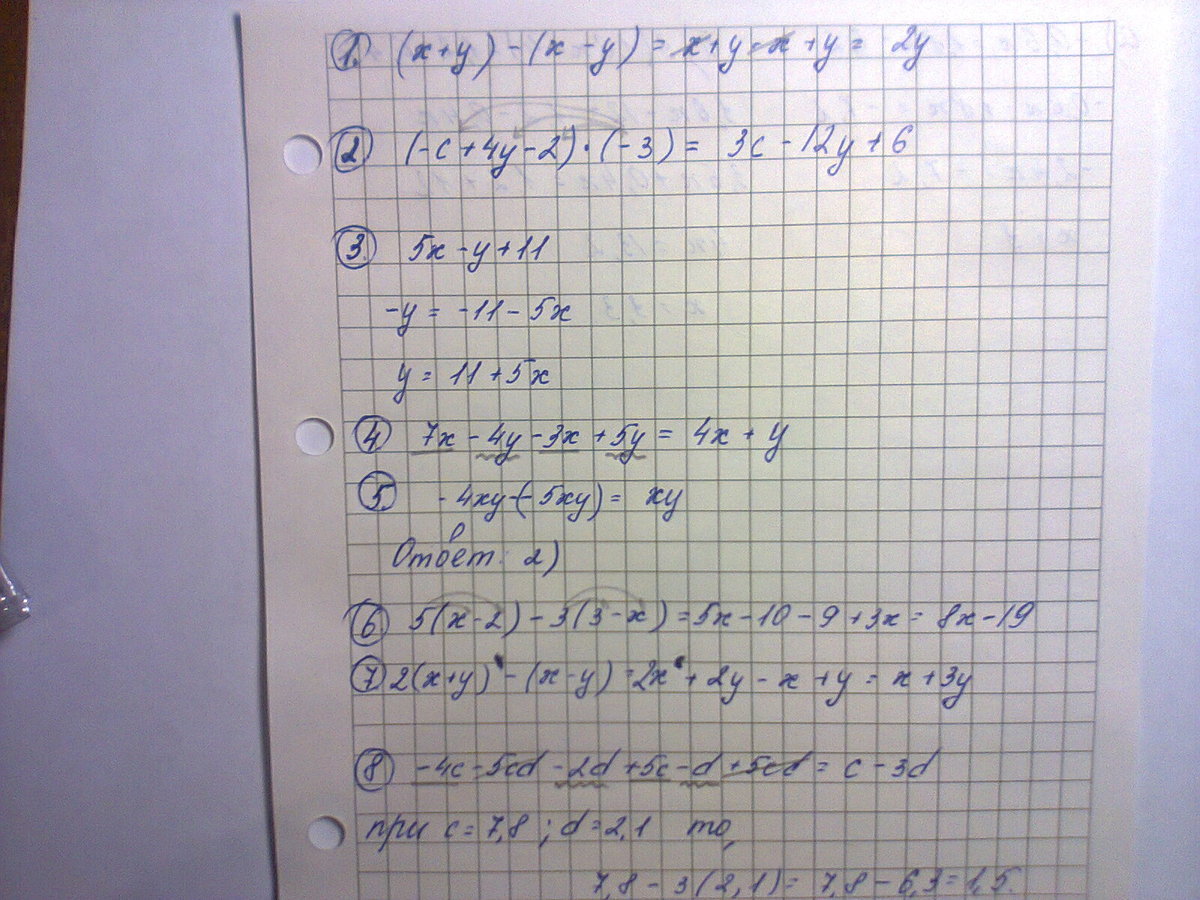 1. (x+y) - (x-y) = x+y-x+y = 2y
2 (-c+4y-2)·(-3) = 3c - 12y + 6
3. 5x - y + 11
-y = -11 - 5x
y = 11 + 5x
4 7x - 4y - 3x + 5y = 4x + y
5. -4xy-(-5xy) = xy
Ответ: 2)
6 5(x-2) - 3(3-x) = 5x - 10 - 9 + 3x = 8x - 19
7 2(x+y) - (x-y) = 2x + 2y - x + y = x + 3y
8 -4c - 5cd - 2d + 5c - d + 5cd = c - 3d
при c = 7,8 ; d = 2,1 то,
7,8 - 3(2,1) = 7,8 - 6,3 = 1,5.